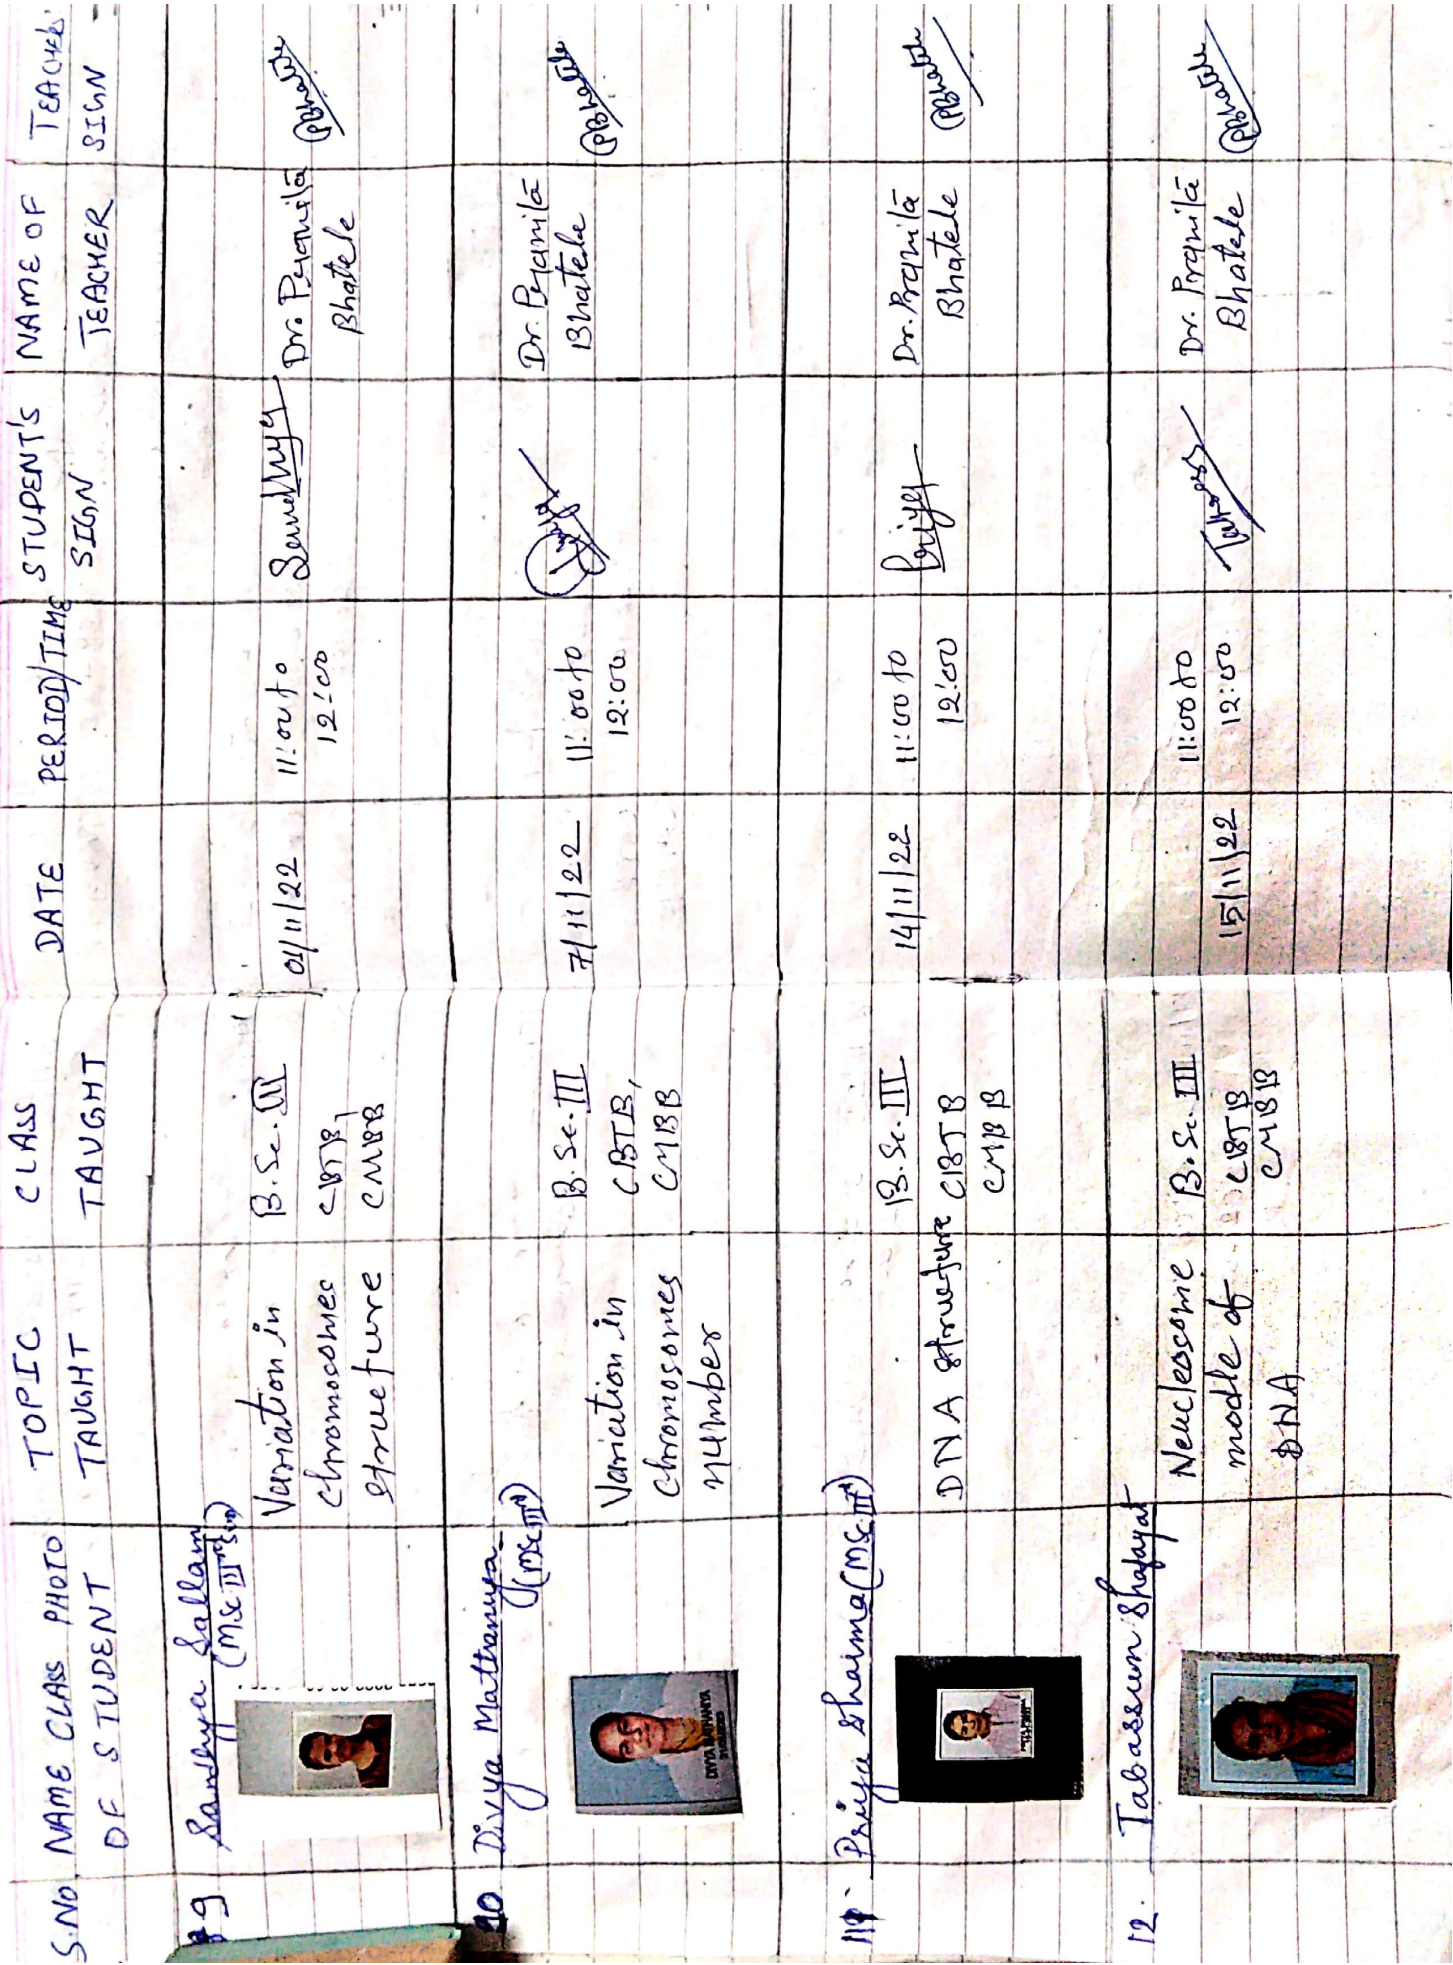 S.NO NAME CLASS PHOTO OF STUDENT TOPIC TAUGHT CLASS TAUGHT DATE PERIOD/TIME STUDENT'S SIGN NAME OF TEACHER TEACHER'S SIGN
9 Sandhya Sallam
(MSc III
Variation in
chromosomes
structure
B.Sc. III
CBTB,
CMBB
01/11/22
11:00 to
12:00
Sandhya
Dr. Pramila
Bhatele
PBhatele
10 Divya Mathanya
(MSc III
DIVYA MATHANYA
Variation in
Chromosomes
number
B.Sc. III
CBTB,
CMBB
7/11/22
11:00 to
12:00
Dr. Pramila
Bhatele
PBhatele
11 Priya Sharma (MSc III
DNA structure
B.Sc. III
CBTB
CMBB
14/11/22
11:00 to
12:00
Priya
Dr. Pramila
Bhatele
PBhatele
12. Tabassum Shafayat
Neucleosome
modle of
DNA
B.Sc. III
CBTB
CMBB
15/11/22
11:00 to
12:00
Dr. Pramila
Bhatele
PBhatele